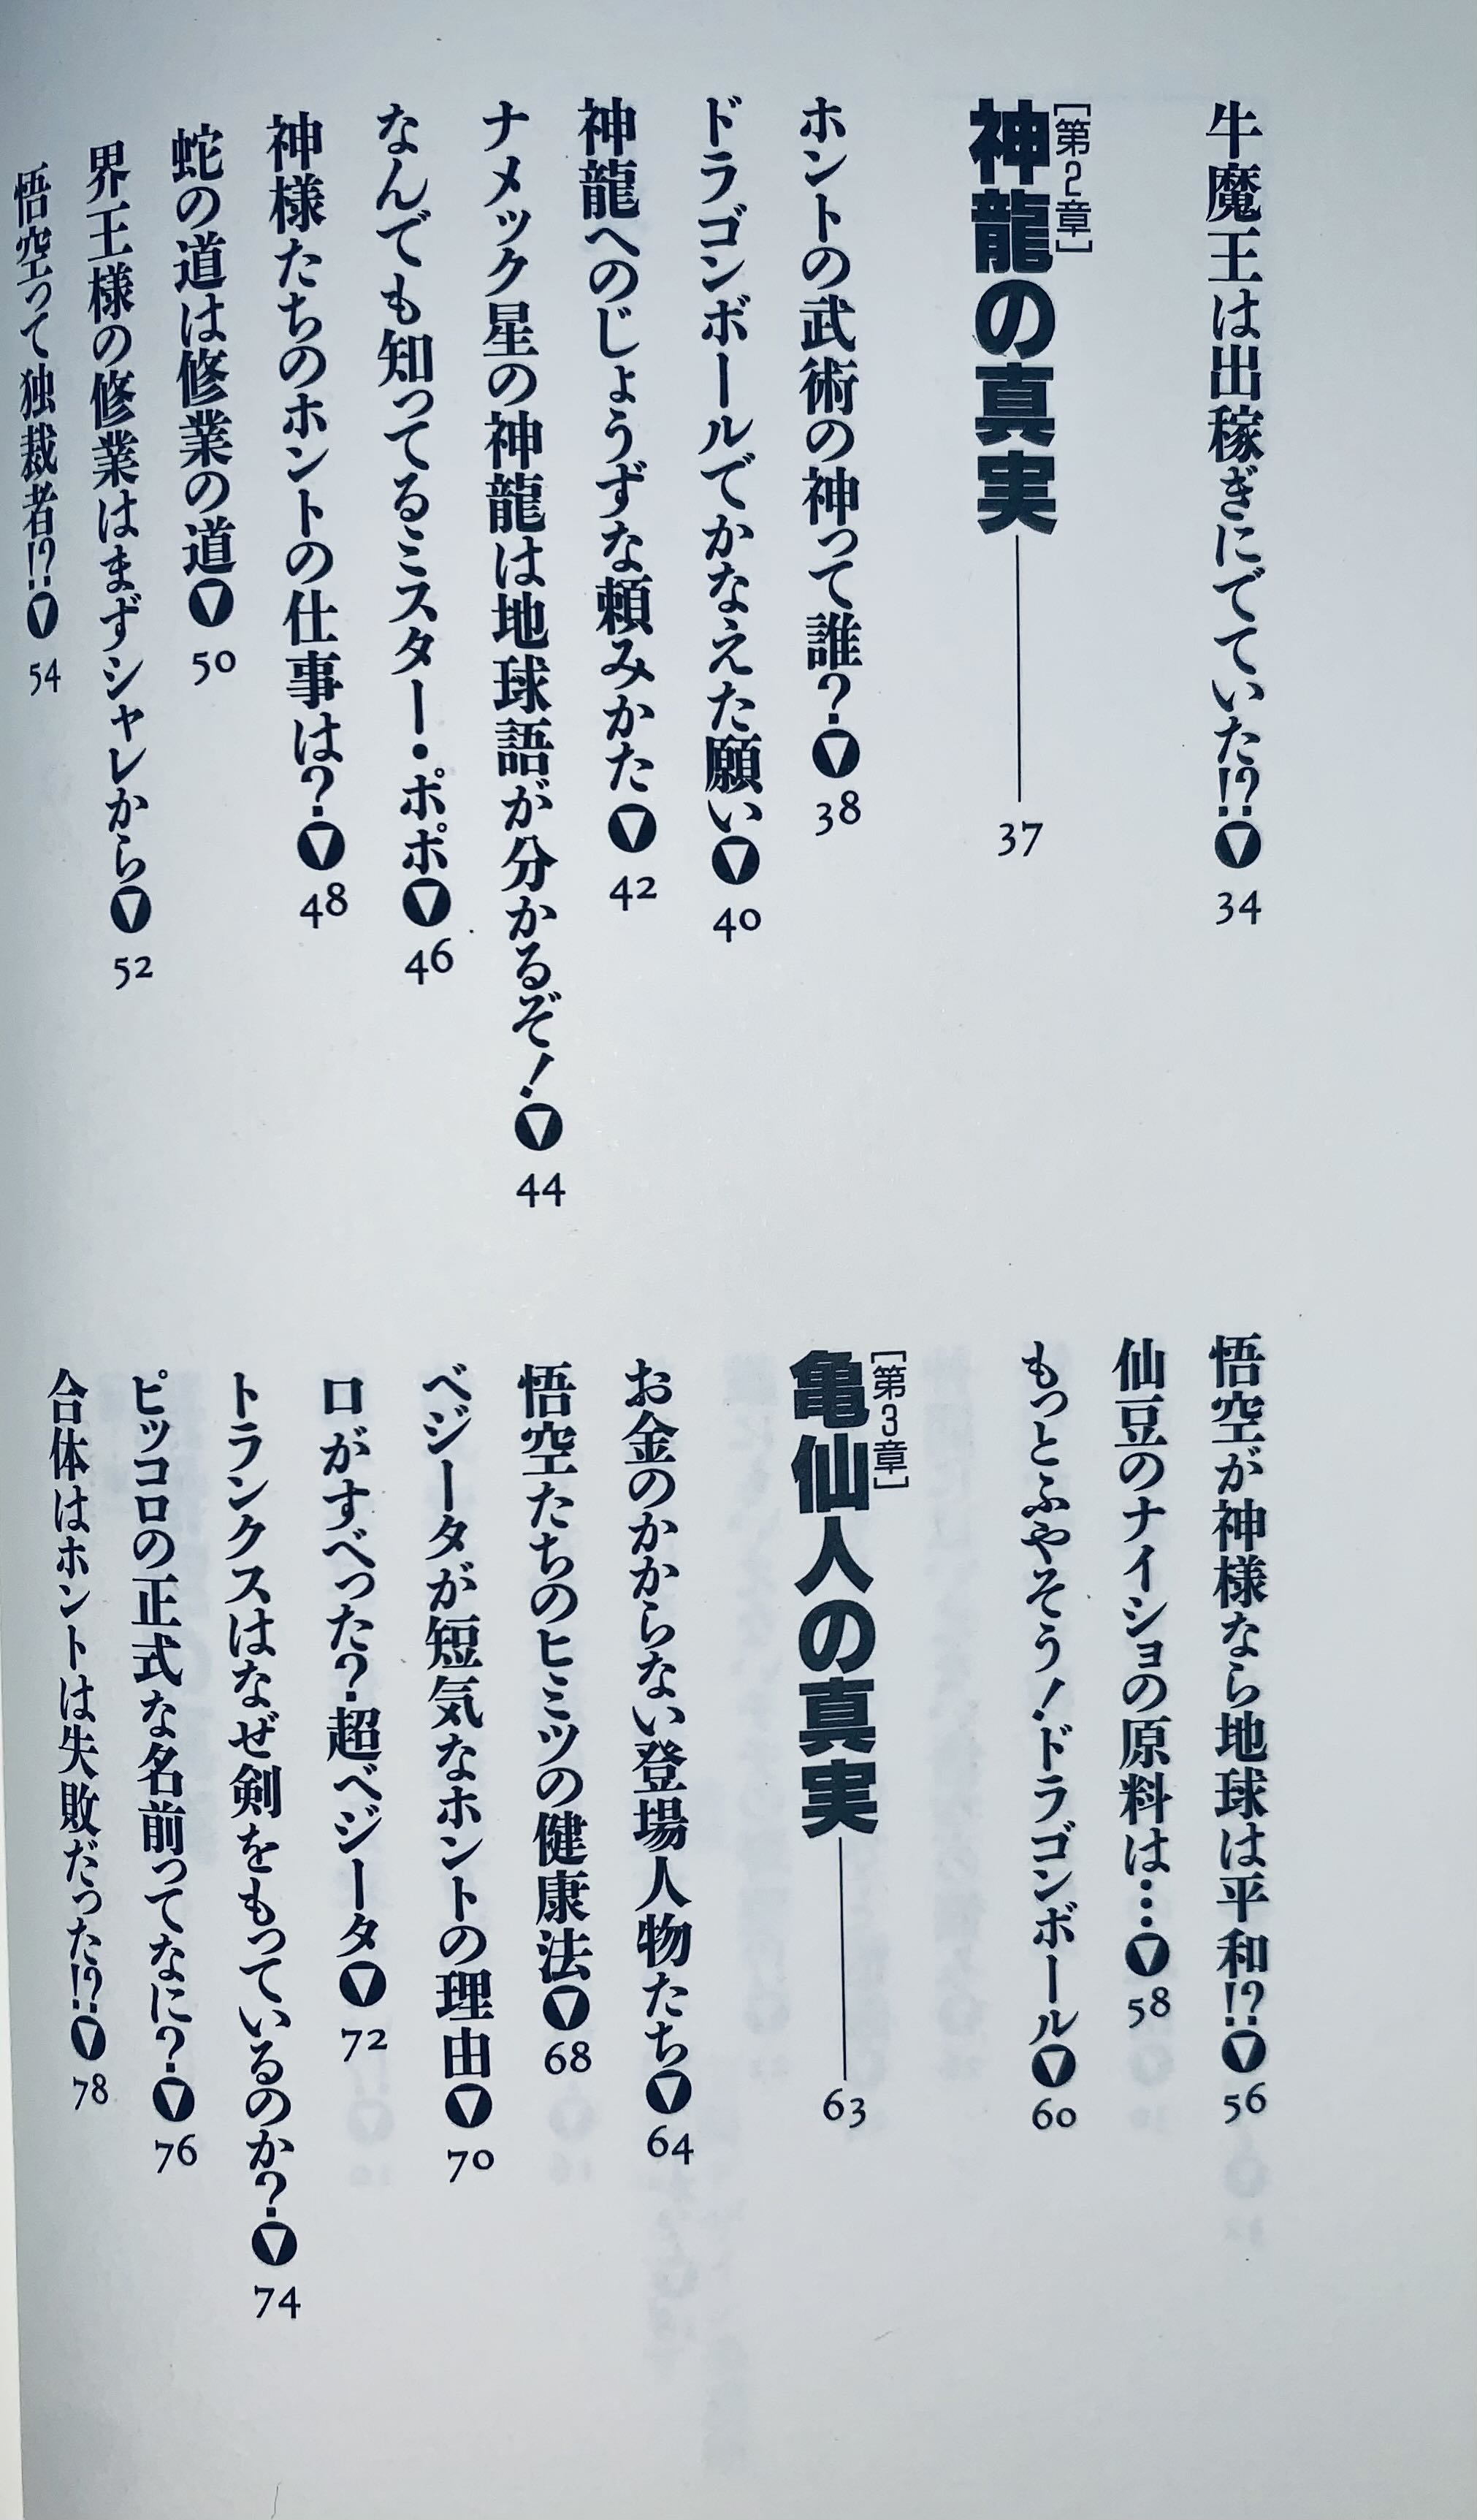 牛魔王は出稼ぎにでていた!?▼34
[第2章]
神龍の真実——37
ホントの武術の神って誰?▼38
ドラゴンボールでかなえた願い▼40
神龍へのじょうずな頼みかた▼42
ナメック星の神龍は地球語が分かるぞ!▼44
なんでも知ってるミスター・ポポ▼46
神様たちのホントの仕事は?▼48
蛇の道は修業の道▼50
界王様の修業はまずシャレから▼52
悟空って独裁者!?▼54
悟空が神様なら地球は平和!?▼56
仙豆のナイショの原料は…▼58
もっとふやそう!ドラゴンボール▼60
[第3章]
亀仙人の真実——63
お金のかからない登場人物たち▼64
悟空たちのヒミツの健康法▼68
ベジータが短気なホントの理由▼70
口がすべった?超ベジータ▼72
トランクスはなぜ剣をもっているのか?▼74
ピッコロの正式な名前ってなに?▼76
合体はホントは失敗だった!?▼78